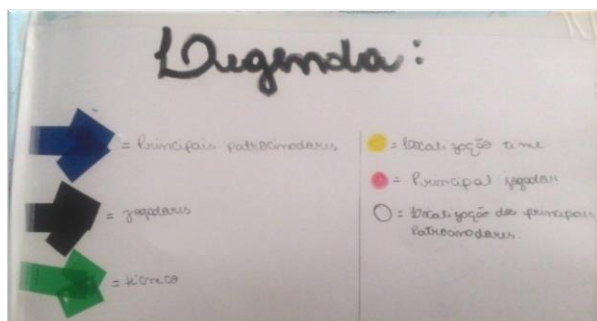 Legenda:
= Principais patrocinadores
= jogadores
= técnico
= localização time
= Principal jogador
= localização dos principais
patrocinadores